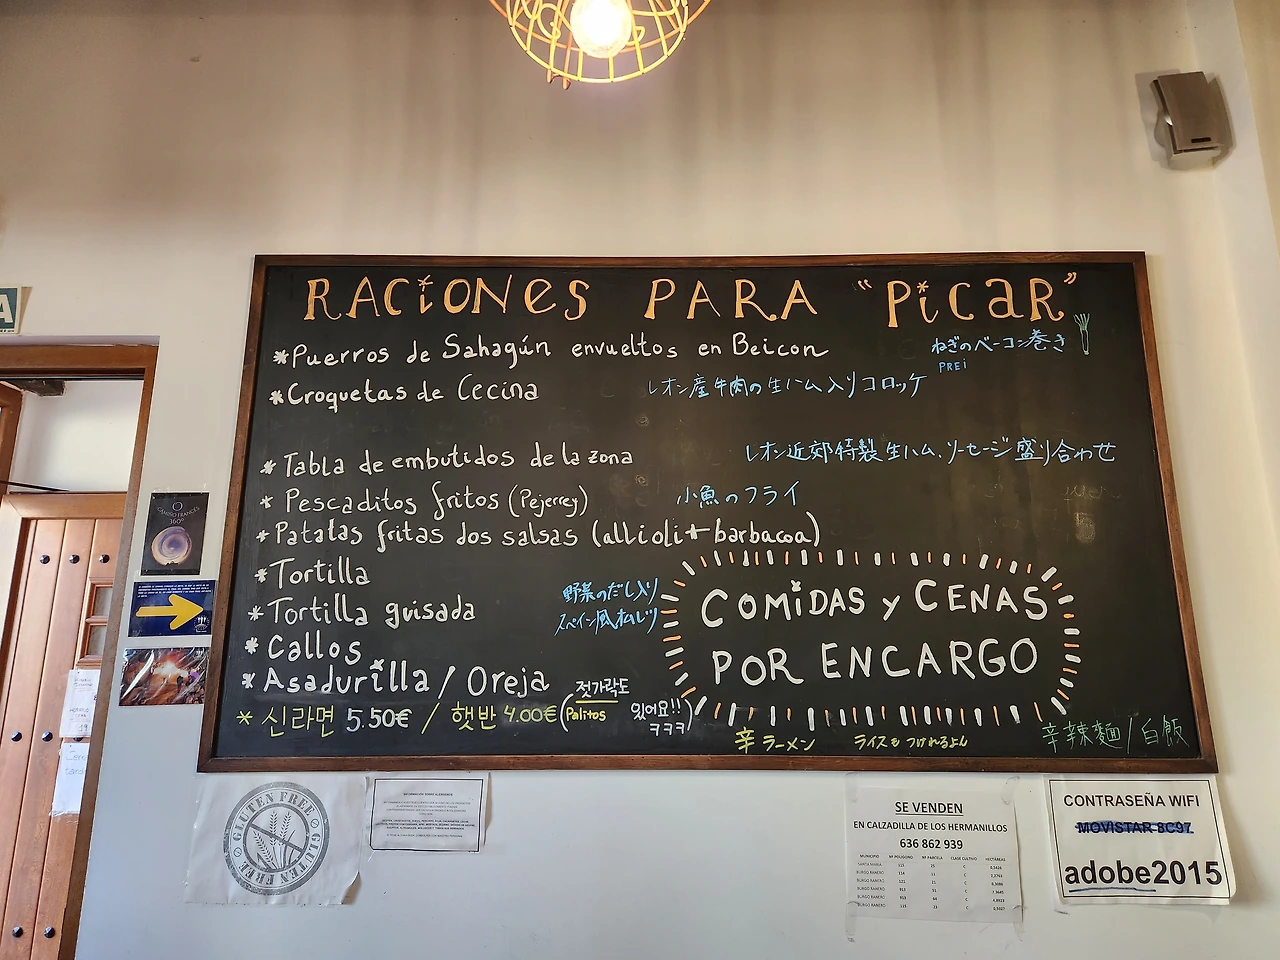 RACiONES PARA "PiCaR"
*Puerros de Sahagún envueltos en Beicon
ねぎのベーコン巻き
PREi
*Croquetas de Cecina
レオン産牛肉の生ハム入りコロッケ
*Tabla de embutidos de la zona
レオン近郊特製生ハム、ソーセージ盛り合わせ
*Pescaditos fritos (Pejerrey)
小魚のフライ
*Patatas fritas dos salsas (allioli+barbacoa)
*Tortilla
*Tortilla guisada
野菜のだし入り
スペイン風オムレツ
*Callos
*Asadurilla / Oreja
*신라면 5.50€ / 햇반 4.00€ (Palitos
젓가락도
있어요!!
ㅋㅋㅋ)
COMiDAS y CENAS
POR ENCARGO
辛ラーメン
ライスもつけれるよん
辛辣麵/白飯
A
CAMINO FRANCÉS
360º
GLUTEN FREE
GLUTEN FREE
SE VENDEN
EN CALZADILLA DE LOS HERMANILLOS
636 862 939
MUNICIPIO Nº POLIGONO Nº PARCELA CLASE CULTIVO HECTÁREAS
CONTRASEÑA WIFI
MOVISTAR 8C97
adobe2015